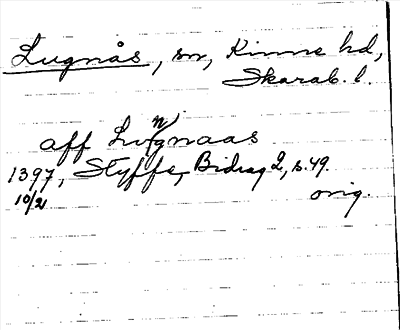 Lugnås, sn, Kinne hd,
Skarab. l.
aff Lwgnaas
n
1397, Styffe, Bidrag 2, s. 49.
10/21
orig.